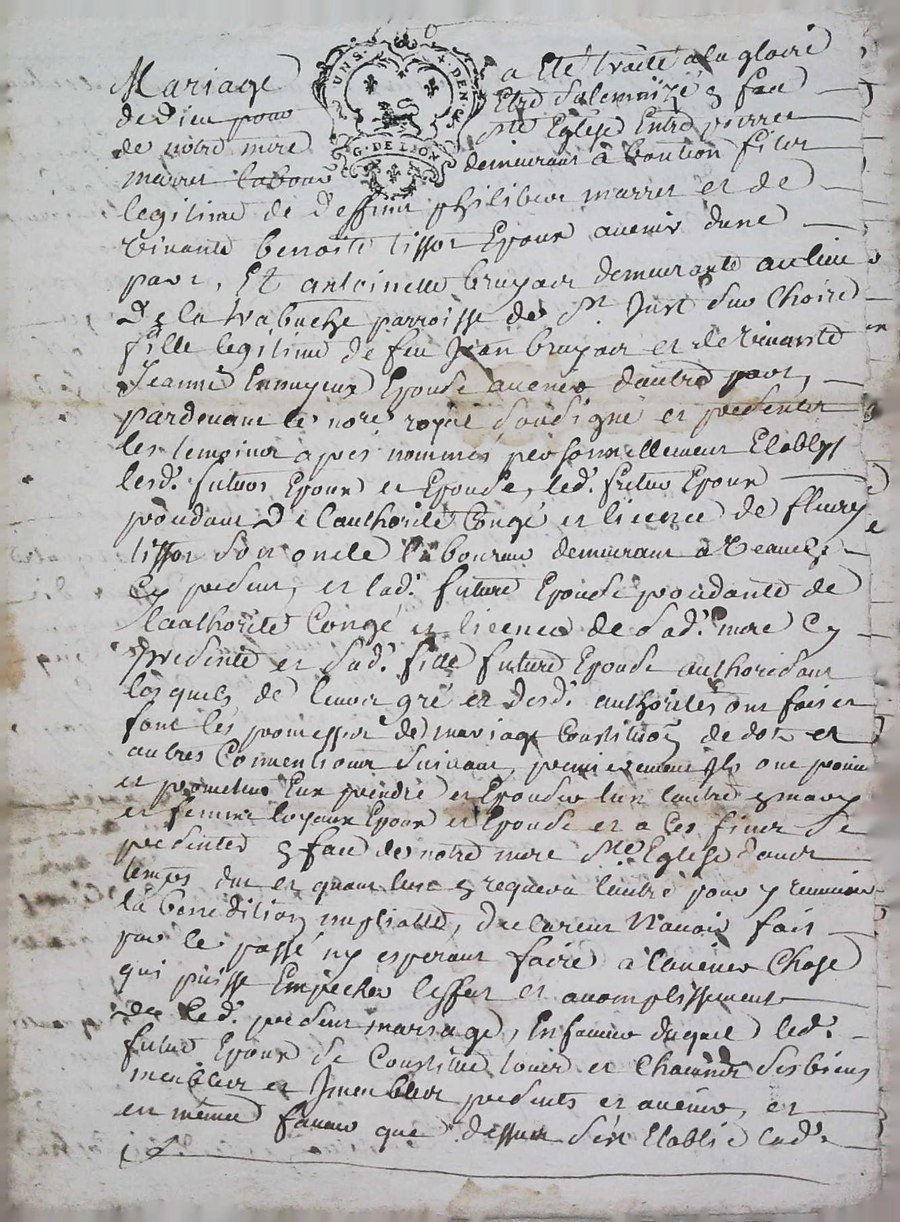 Mariage a Eté traité a la gloire
UNS. 4. DEN.
G. DE LION
de Dieu pour Etre Solemnizé en face
de notre mere Ste Eglise Entre pierre
marret laboureur demeurant à fils
legitime de Deffunt philibert marret et de
vivante benoite tissot Epoux avenir dune
part, Et antoinette bruyair demeurante au lieu
De la trabuche parroisse de St Just Sur Choire
fille legitime de feu Jean bruyair et de vivante
Jeanne Epouse avenir dautre part,
pardevant le nore royal Soussigné et presents
les temoins après nommés personnellement Etablys
lesd. futurs Epoux et Epouse, led. futur Epoux
procedant De lauthorité Congé et licence de fleury
tissot Son oncle laboureur demeurant à
Cy present, et lad. future Epouse procedante de
lauthorité Congé et licence de Sad. mere Cy
presente et Sad. fille future Epouse authorisant
lesquels de leur gré et desd. authorités ont fait et
font les promesses de mariage Constituon de dot et
autres Conventions Suivant, premierement Ils ont promis
et promettent Eux prendre et Epouser lun lautre en mary
et femme loyaux Epoux et Epouse et a Ces fins Se
presenter en face de notre mere Ste Eglise dans
temps du et quant lun en requera lautre pour y
la benediction nuptialle, declarent Navoir fait
par le passé ny esperant faire à lavenir Chose
qui puisse Empecher leffet et acomplissement
du led. present mariage, En faveur duquel led.
futur Epoux Se Constitue tous et Chacuns Ses biens
meubles et Jmeubles presents et avenir, et
en même faveur que dessus Sest Etablie lad.